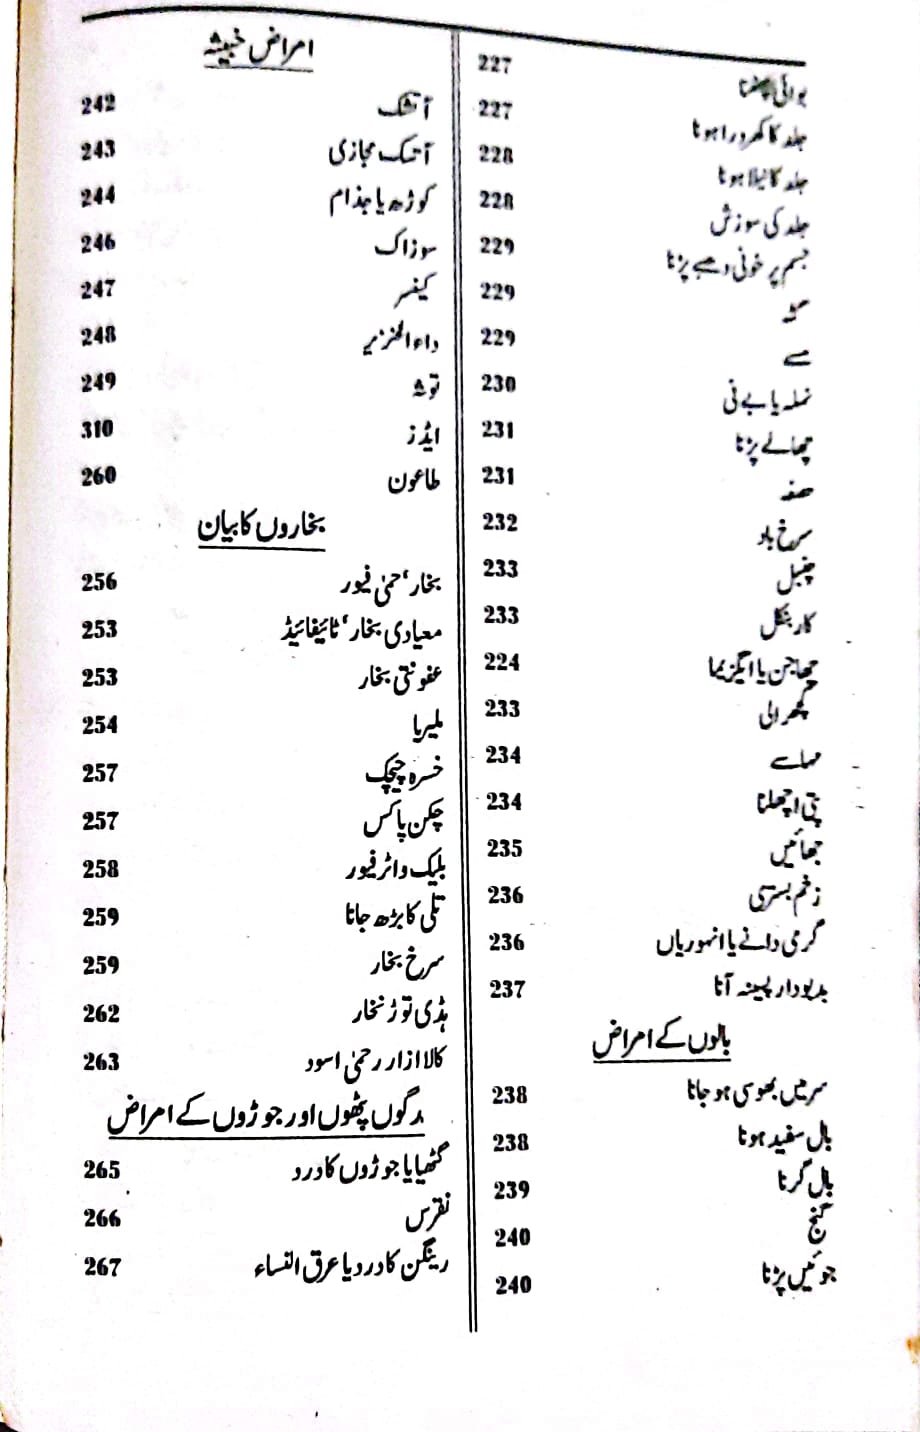 بوائی پھٹنا 227
جلد کا کھردرا ہونا 227
جلد کا نیلا ہونا 228
جلد کی سوزش 228
جسم پر خونی دھبے پڑنا 229
گٹہ 229
مسے 229
نملہ یا بے نی 230
چھالے پڑنا 231
صفہ 231
سرخ باد 232
چنبل 233
کاربنکل 233
چھاجن یا ایگزیما 224
کچھرالی 233
مہاسے 234
پتی اچھلنا 234
جھائیں 235
زخم بستری 236
گرمی دانے یا انہوریاں 236
بدبودار پسینہ آنا 237
بالوں کے امراض
سر میں بھوسی ہو جانا 238
بال سفید ہونا 238
بال گرنا 239
گنج 240
جوئیں پڑنا 240
امراض خبیثہ
آتشک 242
آتشک مجازی 243
کوڑھ یا جذام 244
سوزاک 246
کینسر 247
داء الخنزیر 248
توثہ 249
ایڈز 310
طاعون 260
بخاروں کا بیان
بخار، حمیٰ فیور 256
معیادی بخار، ٹائیفائیڈ 253
عفونتی بخار 253
ملیریا 254
خسرہ چیچک 257
چکن پاکس 257
بلیک واٹر فیور 258
تلی کا بڑھ جانا 259
سرخ بخار 259
ہڈی توڑ بخار 262
کالا ازار رحمیٰ اسود 263
رگوں پٹھوں اور جوڑوں کے امراض
گٹھیا یا جوڑوں کا درد 265
نقرس 266
رینگن کا درد یا عرق النساء 267